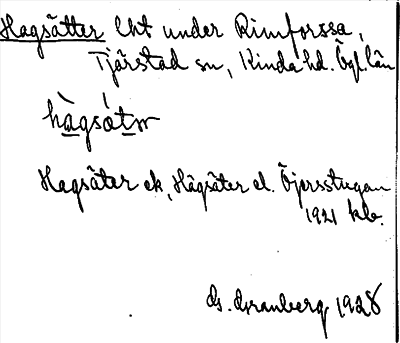 Hagsätter Lht under Rimforssa,
Tjärstad sn, Kinda hd. Ögl. län
hàgsátər
Hagsäter ek, Hägsäter el. Öjersstugan
1921 kb.
G. Granberg 1928